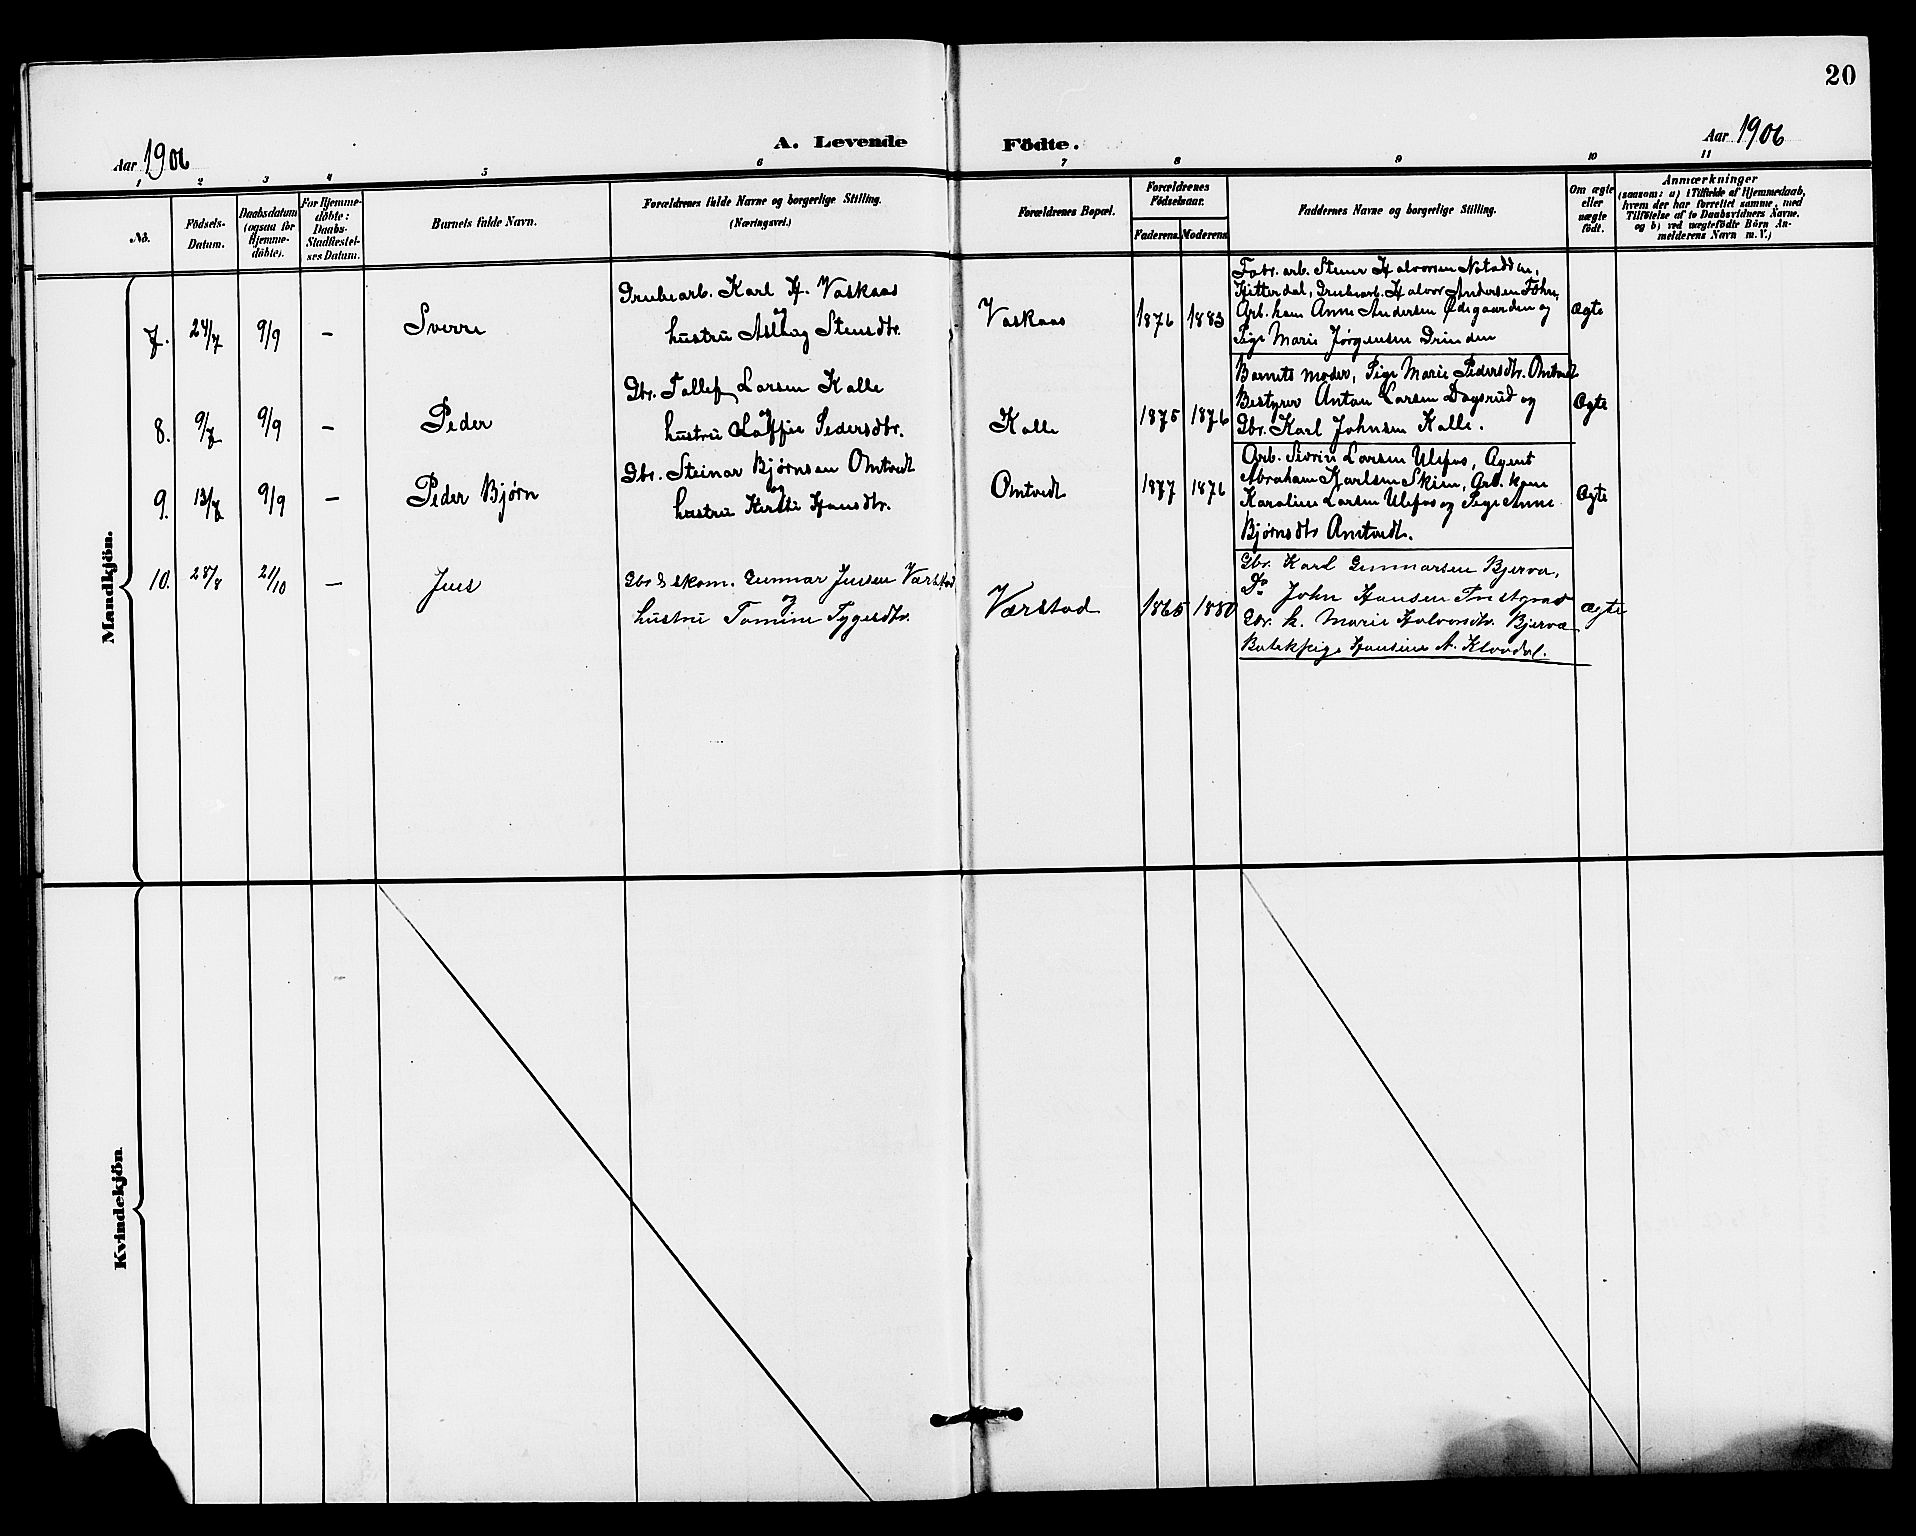 20
Aar 1906
A. Levende Födte.
Aar 1906
1 2 3 4 5 6 7 8 9 10 11
No.
Födsels-
Datum.
Daabsdatum
(ogsaa for
Hjemme-
döbte).
For Hjemme-
döbte:
Daabs-
Stadfæstel-
ses Datum.
Barnets fulde Navn.
Forældrenes fulde Navne og borgerlige Stilling.
(Næringsvei.)
Forældrenes Bopæl.
Forældrenes
Födselsaar.
Faderens. Moderens.
Faddernes Navne og borgerlige Stilling.
Om ægte
eller
uægte
födt.
Anmærkninger
(saasom: a) i Tilfælde af Hjemmedaab,
hvem der har forrettet samme, med
Tilföielse af to Daabsvidners Navne,
og b) ved uægtefödte Börn An-
melderens Navn m. V.)
Mandkjön.
7. 24/7 9/9 — Sverre
Grubearb. Karl H. Vaskaas
og
hustru Aslaug Stensdtr.
Vaskaas 1876 1883
Fabr. arb. Stener Halvorsen Notodden,
Hitterdal, Grubearb. Halvor Andersen Fæhn,
Arb. kone Anne Andersen Ødegaarden og
Pige Marie Jørgensen Drinden
Ægte
8. 9/7 9/9 — Peder
Gbr. Tollef Larsen Kalle
og
hustru Pedersdtr.
Kalle 1875 1876
Barnets moder, Pige Marie Pedersdtr. Omtvedt
Bestyrer Anton Larsen Dagsrud og
Gbr. Karl Johnsen Kalle.
Ægte
9. 13/7 9/9 — Peder Bjørn
Gbr. Steinar Bjørnsen Omtvedt
og
hustru Kirsti Hansdtr.
Omtvedt 1877 1876
Arb. Sivrin Larsen Ulefos, Agent
Abraham Karlsen Skien, Arb. kone
Karoline Larsen Ulefos og Pige Anne
Bjørnsdtr Omtvedt.
Ægte
10. 28/8 21/10 — Jens
Gbr & skom. Gunnar Jensen Værstad
og
hustru Tomine Tygesdtr.
Værstad 1865 1880
Gbr. Karl Gunnarsen Bjerva,
Do John Hansen
Gbr. k. Marie Halvorsdtr. Bjerva
Butikpige Hansine A. Klovdal.
Ægte
Kvindekjön.